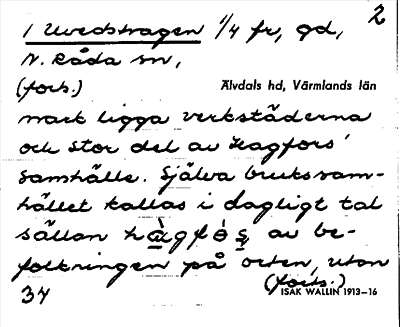 2
1 Uvedshagen 1/4 fr, gd,
N. Råda sn,
(forts.) Älvdals hd, Värmlands län
mark ligga verkstäderna
och stor del av Hagfors'
samhälle. Själva brukssam-
hället kallas i dagligt tal
sällan hàgfòs̡ av be-
folkningen på orten, utan
(forts.)
34 ISAK WALLIN 1913–16